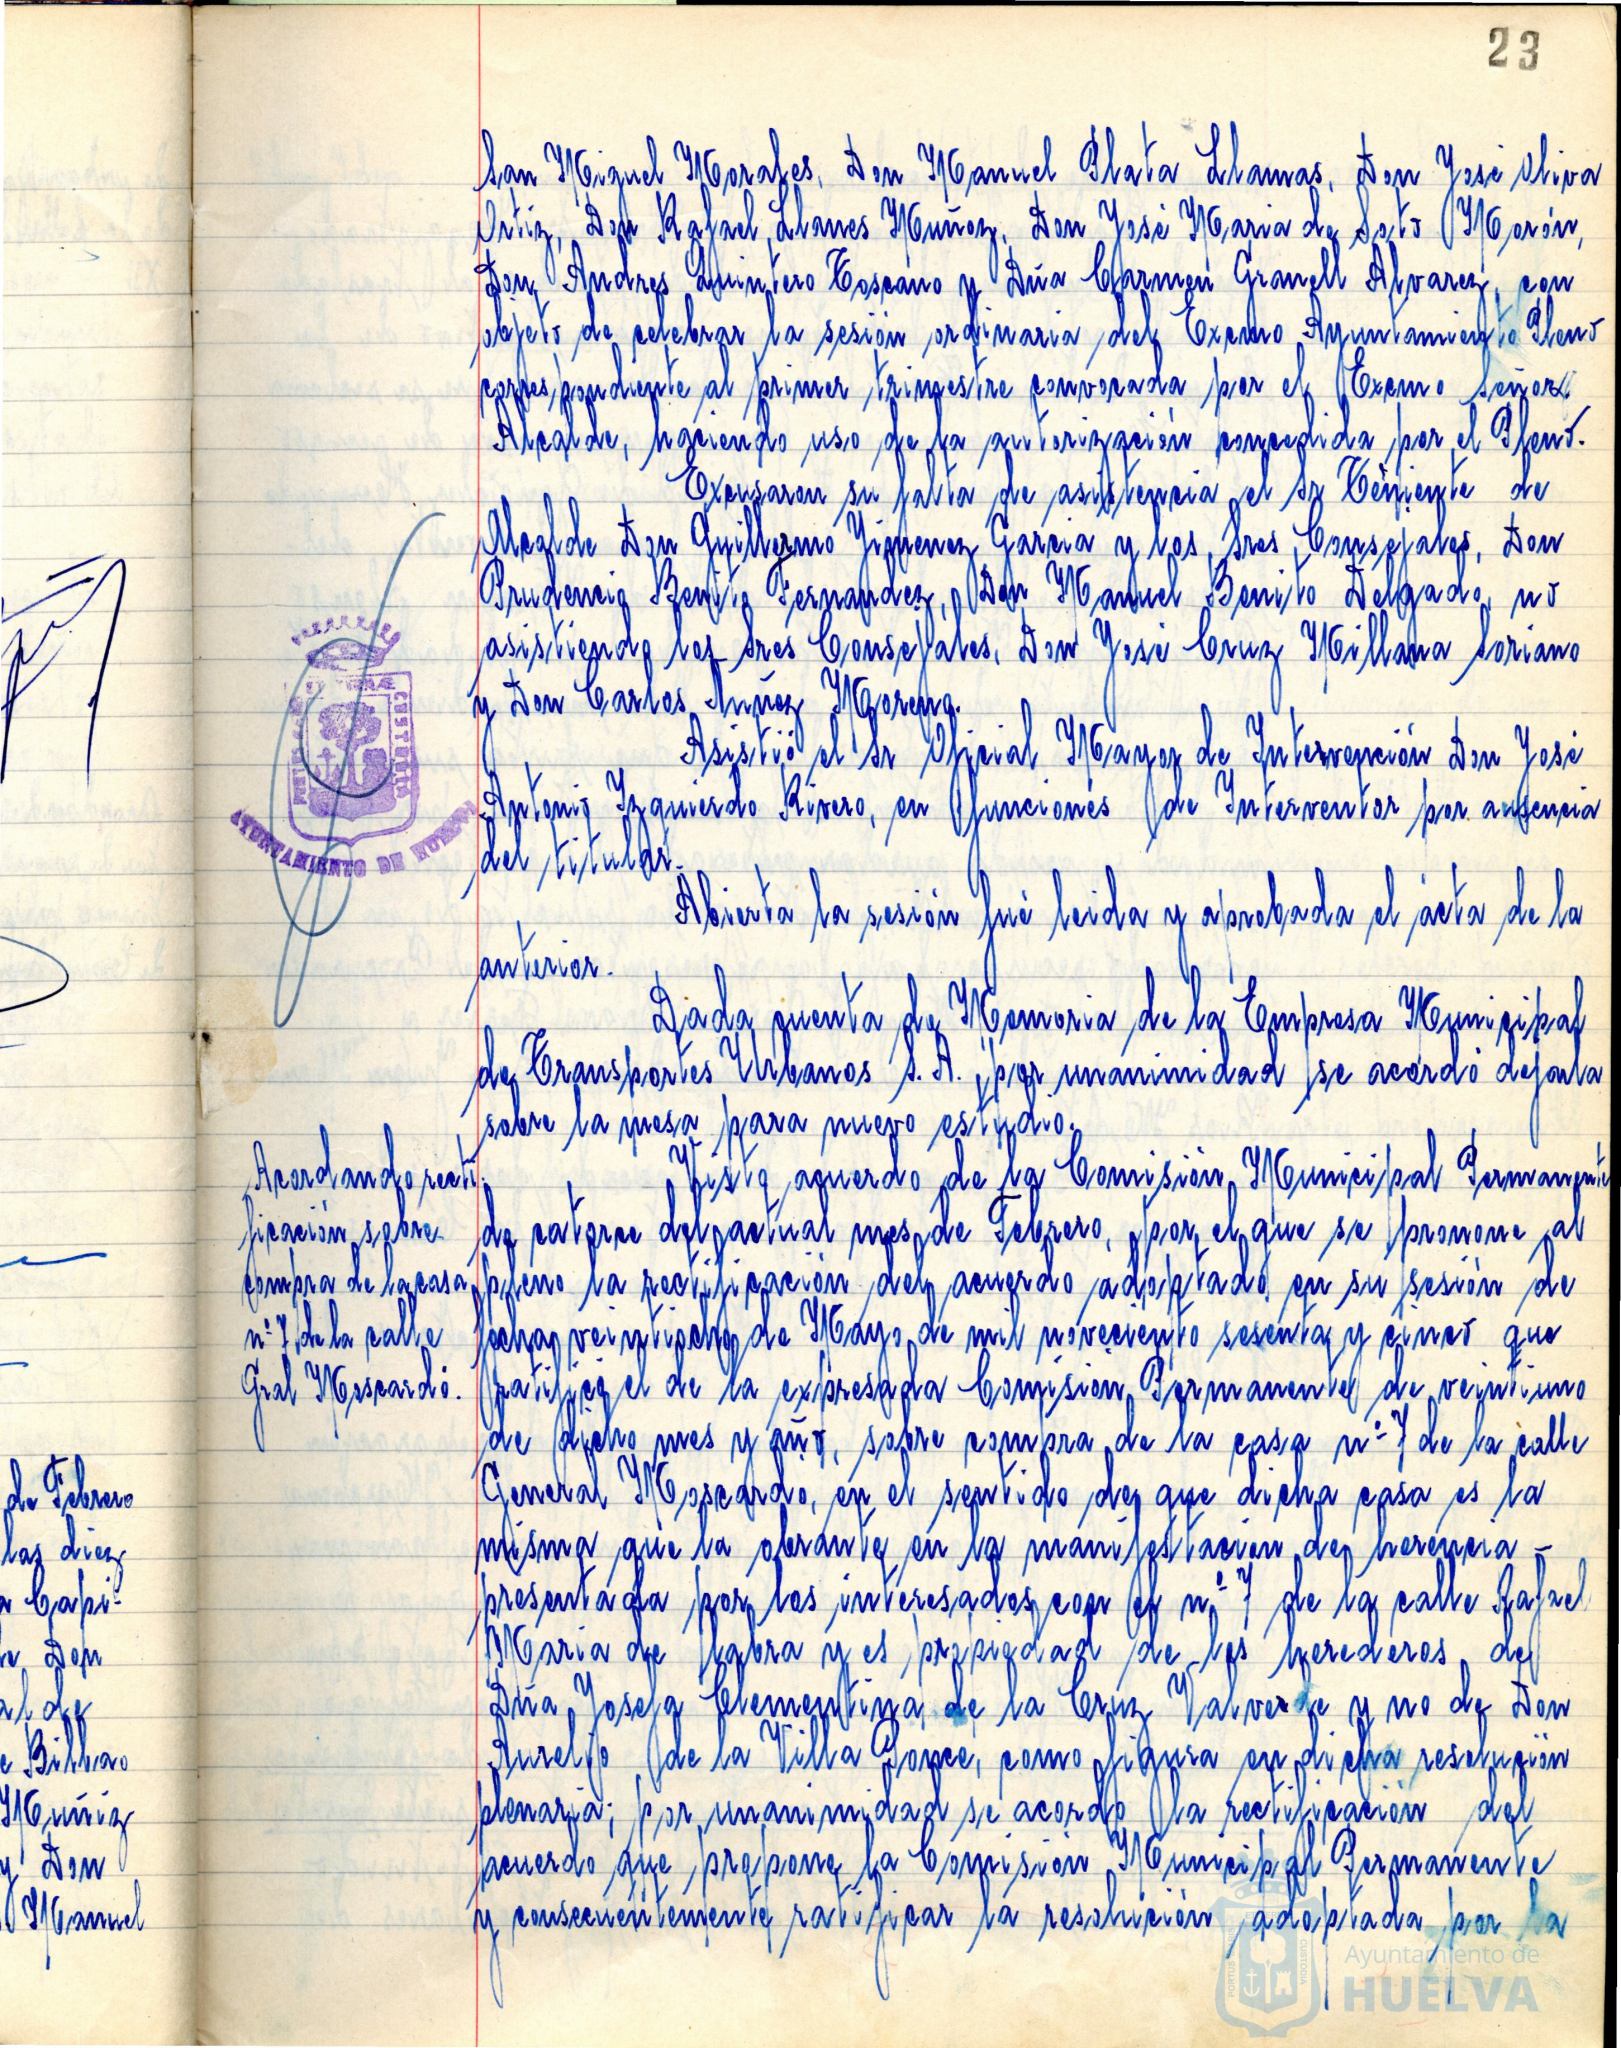 23
San Miguel Morales, Don Manuel Plata Llamas, Don José Oliva
Ortiz, Don Rafael Llanes Muñoz, Don José Maria de Soto Morón,
Don Andres Quintero Toscano y Dña Carmen Granell Alvarez, con
objeto de celebrar la sesión ordinaria del Excmo Ayuntamiento Pleno
correspondiente al primer trimestre convocada por el Excmo Señor
Alcalde, haciendo uso de la autorización concedida por el Pleno.
Excusaron su falta de asistencia el Sr Teniente de
Alcalde Don Guillermo Jimenez Garcia y los Sres Consejales, Don
Prudencio Benito Fernandez, Don Manuel Benito Delgado, no
asistiendo los Sres Consejales, Don José Cruz Millana Soriano
y Don Carlos Nuñez Moreno.
Asistió el Sr Oficial Mayor de Intervención Don José
Antonio Izquierdo Rivero, en funciones de Interventor por ausencia
del titular.
Abierta la sesión fué leida y aprobada el acta de la
anterior.
Dada cuenta de Memoria de la Empresa Municipal
de Transportes Urbanos S.A., por unanimidad se acordó dejarla
sobre la mesa para nuevo estudio.
Acordando recti-
ficación sobre
compra de la casa
nº 7 de la calle
Gral Moscardó.
Visto acuerdo de la Comisión Municipal Permanente
de catorce del actual mes de Febrero, por el que se propone al
pleno la rectificación del acuerdo adoptado en su sesión de
fecha veintiocho de Mayo de mil noveciento sesenta y cinco que
ratificó el de la expresada Comisión Permanente de veintiuno
de dicho mes y año, sobre compra de la casa nº 7 de la calle
General Moscardó, en el sentido de que dicha casa es la
misma que la obrante en la manifestación de herencia -
presentada por los interesados con el nº 7 de la calle Rafael
Maria de Labra y es propiedad de los herederos de
Dña Josefa Clementina de la Cruz Valverde y no de Don
Aurelio de la Villa Ponce, como figura en dicha resolución
plenaria; por unanimidad se acordo la rectificación del
acuerdo que propone la Comisión Municipal Permanente
y consecuentemente ratificar la resolución adoptada por la
AYUNTAMIENTO DE HUELVA
de Febrero
las diez
Capi-
Don
al de
Bilbao
Muñiz
y Don
Manuel
Ayuntamiento de
HUELVA